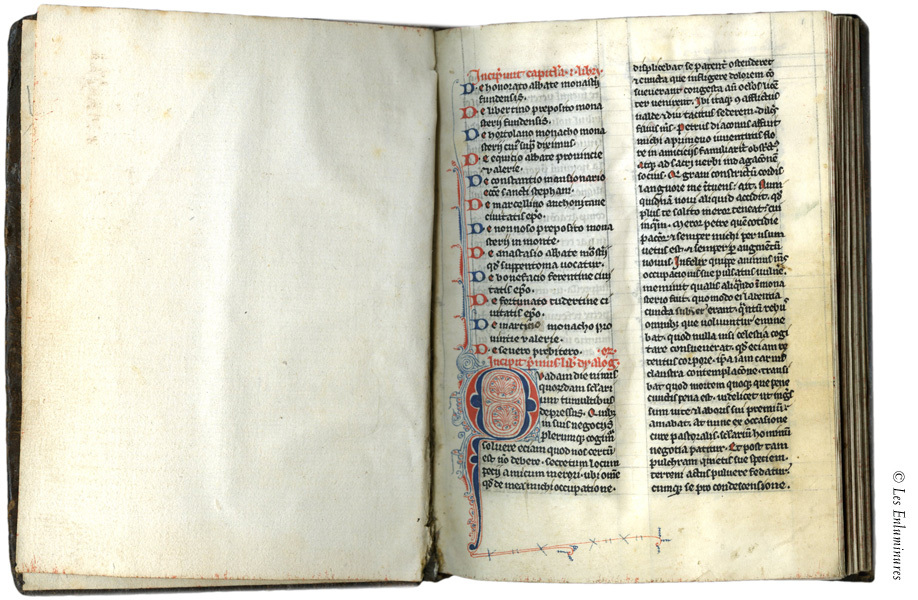 Incipiunt capitula · i · libri
De honorato abbate monast̄ij
fundensis.
De libertino preposito mona
sterij fundensis.
De hortolano monacho mona
sterij eius
De equicio abbate provincie
valerie.
De constantio mansionario
ecc̄e sancti stephani.
De marcellino anchonitane
civitatis ep̄o.
De nonnoso preposito mona
sterij in monte.
De anastasio abbate
vocatur.
De bonefacio ferentine civi
tatis ep̄o.
De fortunato tudertine ci
vitatis ep̄o.
De martino monacho pro
vintie valerie.
De severo prebitero.
Incipit p̄mus lib̄ dyalog·
Quadam die nimiis
quorundam seclari
um tumultibus
depressus. Quib;
in suis negociis
plerumque cogim̄
solvere eciam quod nos certū
est nō debere. secretum locum
petij amicum merori. ubi om̄e
qd̄ de mea michi occupatione.
displicebat se patent̄ ostenderet
et cuncta que infligere dolorem cō
sueverant congesta an̄ oclos licen
ter venirent. Ibi itaque afflictus
valde et diu tacitus sederem. 
filius m̄s. Petrus diaconus affuit
michi a primevo iuventutis flo
re in amiciciis familiarit̄
atque ad sacri verbi indagacōnē
socius. Qi gravi cordis
languore me
quidnam novi aliquid accidit. qd̄
plus te solito meror teneat. cui
inquam. Meror petre quē cotidie
pacior et semper michi per usum
vetus est. et semper per augmentū
novus. Infelix quippe animus m̄s
occupacionis sue pulsatus vulne
meminit qualis aliquādo ī mona
sterio fuit. quomodo ei labentia
cuncta subter erant.
omnibus que volvuntur emine
bat. quod nulla nisi celestia cogi
tare consueverat. qd̄ eciam re
tentus corpore. ipsa iam carnis
claustra contemplacōne transi
bat. quod mortem quoque que pene
cunctis pena est. videlicet ut
sum vite et laboris sui premium
amabat. At nunc ex occasione
cure pastoralis. seclariū hominū
negotia patitur. Et post tam
pulchram quietis sue speciem.
terreni actus pulvere fedatur.
cumque se pro condescensione.
© Les Enluminures